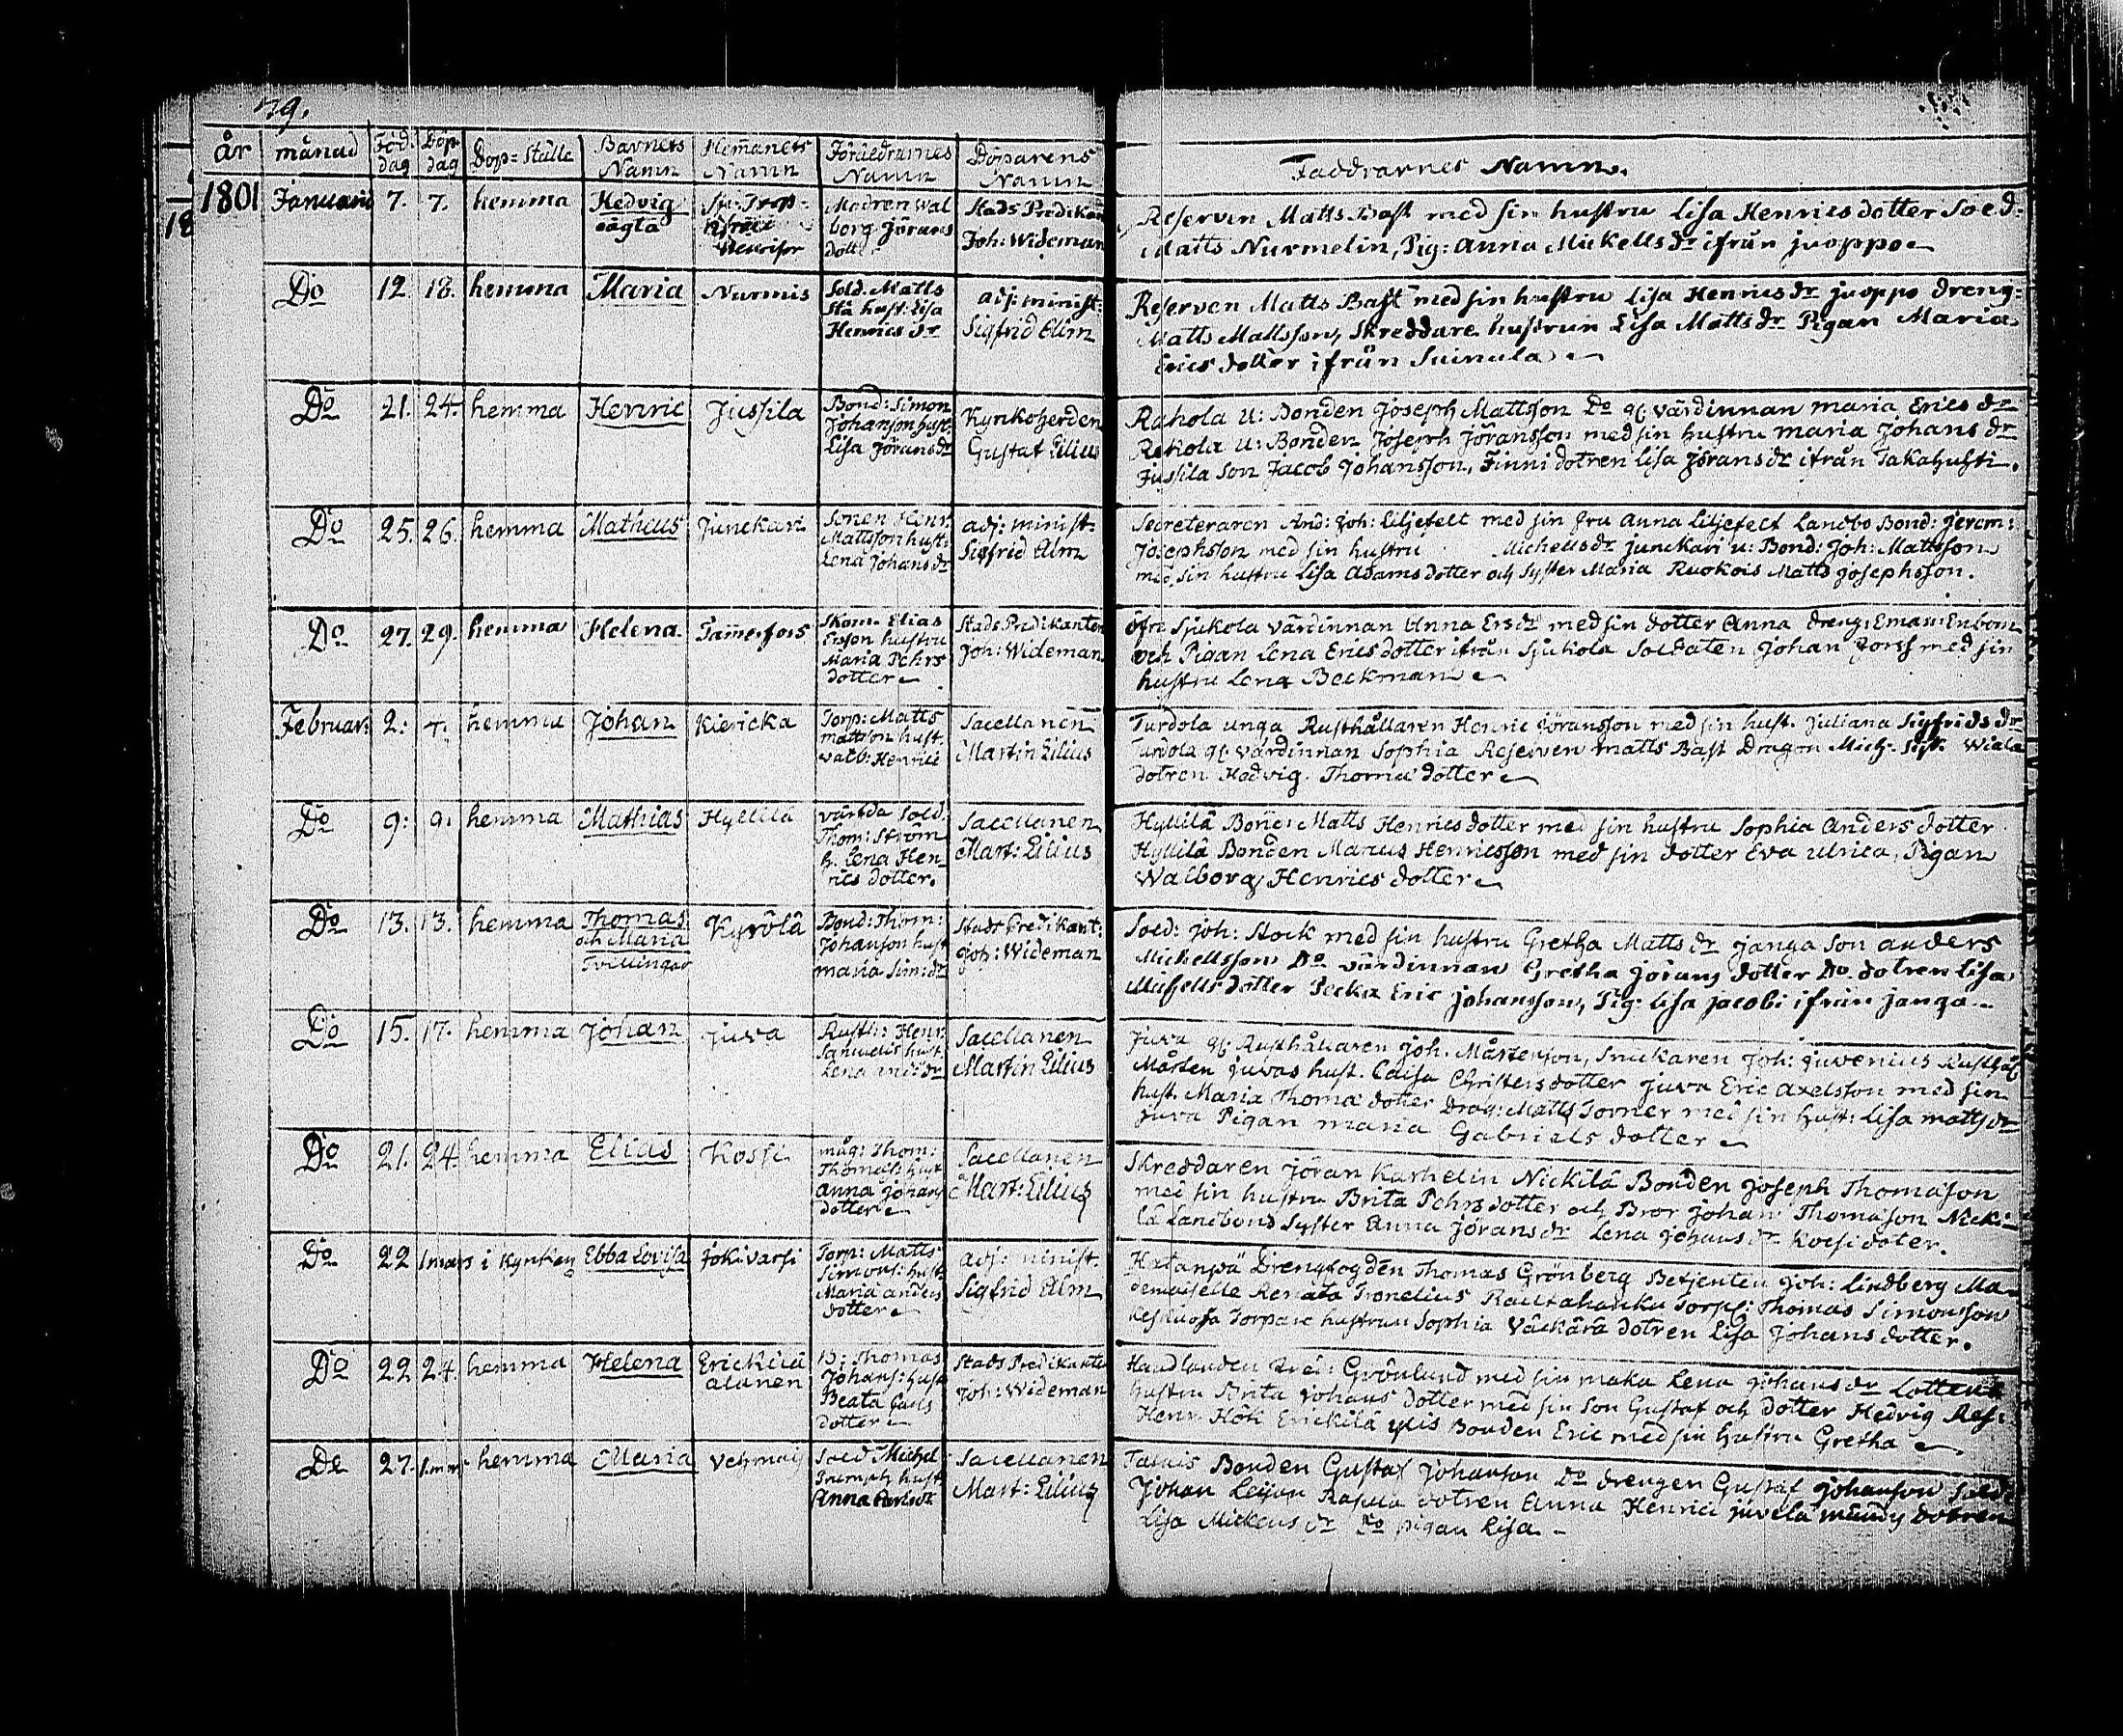 79.
år månad Föd. dag Döp dag Dop=Ställe Barnets Namn Hemanets Namn Föräldrarnes Namn Döparens Namn
Faddrarnes Namn.
1801 Januarii 7. 7. hemma
Hedvig
oägta
Modren Wal
borg Jörans
dott.
Stads Predikan
Joh: Wideman
Reserven Matts Bast med sin hustru Lisa Henrics dotter Sold:
Matts Nurmelin, Pig: Anna Mickells dr ifrån juoppo
Do 12. 18. hemma Maria Nurmis
Sold. Matts
Stå hust: Lisa
Henrics dr
adj: minist:
Sigfrid Alm
Reserven Matts Bast med sin hustru Lisa Henrics dr juoppo dreng:
Matts Mattsson, Skreddare hustrun Lisa Matts dr Pigan Maria
Erics dotter ifrån Suinula
Do 21. 24. hemma Henric Jussila
Bond: Simon
Johanson hust.
Lisa Jörans dr
Kyrkoherden
Gustaf Lilius
Rahola U: Bonden Joseph Mattsson Do gl. värdinnan maria Erics dr
Rahola U: Bonden Joseph Jöransson med sin hustru maria Johans dr
Jussila Son Jacob Johansson, Finni dotren Lisa Jörans dr ifrån Takahuhti.
Do 25. 26. hemma Matheus Junckari
Sonen Henr.
Mattsson hust:
Lena Johans dr
adj: minist:
Sigfrid Alm
Secreteraren And: Joh: Liljefelt med sin fru Anna Liljefelt Landbo Bond: Jerem:
Josephsson med sin hustru Michels dr junckari u: Bond: Joh: Mattsson
med sin hustru Lisa Adams dotter och Syster Maria Ruokois Matts Josephsson.
Do 27. 29. hemma Helena. Tammerfors
Skom. Elias
Ersson hustru
Maria Pehrs
dotter
Stads Predikanten
Joh: Wideman.
öfre Sjukola värdinnan Anna Ers dr med sin dotter Anna dreng: Eman: Enbom
och Pigan Lena Erics dotter ifrån Sjukola Soldaten Johan med sin
hustru Lena Beckman
Februar: 2: 4. hemma Johan Kiericka
Torp: Matts
mattson hust.
valb: Henrici
Sacellanen
Martin Lilius
Turdola unga Rusthållaren Henric Jöransson med sin hust. Juliana Sigfrids dr
Turdola gl. värdinnan Sophia Reserven matts Bast Dragon Mich: Wiala
dotren Hedvig Thomæ dotter
Do 9: 9. hemma Mathias Hyllilä
Sold.
Thom: Ström
h. Lena Hen
rics dotter.
Sacellanen
Mart: Lilius
Hyllilä Bonden Matts Henrics dotter med sin hustru Sophia Anders dotter
Hyllilä Bonden Marcus Henricsson med sin dotter Eva Ulrica, Pigan
Walborg Henrics dotter
Do 13. 13. hemma
Thomas
och Maria
Tvillingar
Kyrölä
Bond: Thom:
Johanson hust
maria Sim: dr
Stads Predikant:
Joh: Wideman
Sold: Joh: Stock med sin hustru Gretha Matts dr janga Son anders
Michellsson Do värdinnan Gretha Jörans dotter Do dotren Lisa
Michells dotter Pecka Eric Johansson, Pig: Lisa Jacobi ifrån janga
Do 15. 17. hemma Johan Juva
Rusth: Henr.
Samuels: hust.
Lena
Sacellanen
Martin Lilius
Juva gl. Rusthållaren Joh. Mårtenson, Snickaren Joh: Juvenius Rusthål
Mårten Juvas hust. Caisa Christers dotter Juva Eric Axelsson med sin
hust. Maria Thomæ dotter Drag: Matts Torner med sin hust: Lisa matts dr
Juva Pigan maria Gabriels dotter
Do 21. 24. hemma Elias Kossi
måg: Thom:
Thomas: hust
Anna Johans
dotter
Sacellanen
Mart: Lilius
Skreddaren Jöran Karhelin Nickilä Bonden Joseph Thomæson
med sin hustru Brita Pehrs dotter och Bror Johan Thomæson Nicki
lä Landbond Syster Anna Jörans dr Lena Johans dr Kossi doter.
Do 22 1 mars i Kyrkan Ebba Lovisa Jokivarsi
Torp: Matts
Simons: hust:
Maria anders
dotter
adj: minist.
Sigfrid Alm
Hatanpä Drengfogden Thomas Grönberg Betjenten Joh: Lindberg Ma
demoiselle Renata Tronelius Rautahanka Torp: Thomas Simonsson
Torpare hustrun Sophia väärä dotren Lisa Johans dotter.
Do 22 24. hemma Helena
Erickilä
alanen
B: Thomas
Johans: hust
Beata Carls
dotter
Stads Predikante
Joh: Wideman
Handlanden Grönlund med sin maka Lena Johans dr
hustru Brita Johans dotter med sin Son Gustaf och dotter Hedvig Res:
Henr. Hök Erickilä ylis Bonden Eric med sin hustru Gretha
Do 27. 1. mars hemma Maria Vehmaj
Sold Michel
Triumph hust
Anna Carls dr
Sacellanen
Mart: Lilius
Bonden Gustaf Johanson Do drengen Gustaf Johanson Sold:
Johan Leijon Rapula dotren Anna Henrici juvela dotren
Lisa Mickels dr Do pigan Lisa